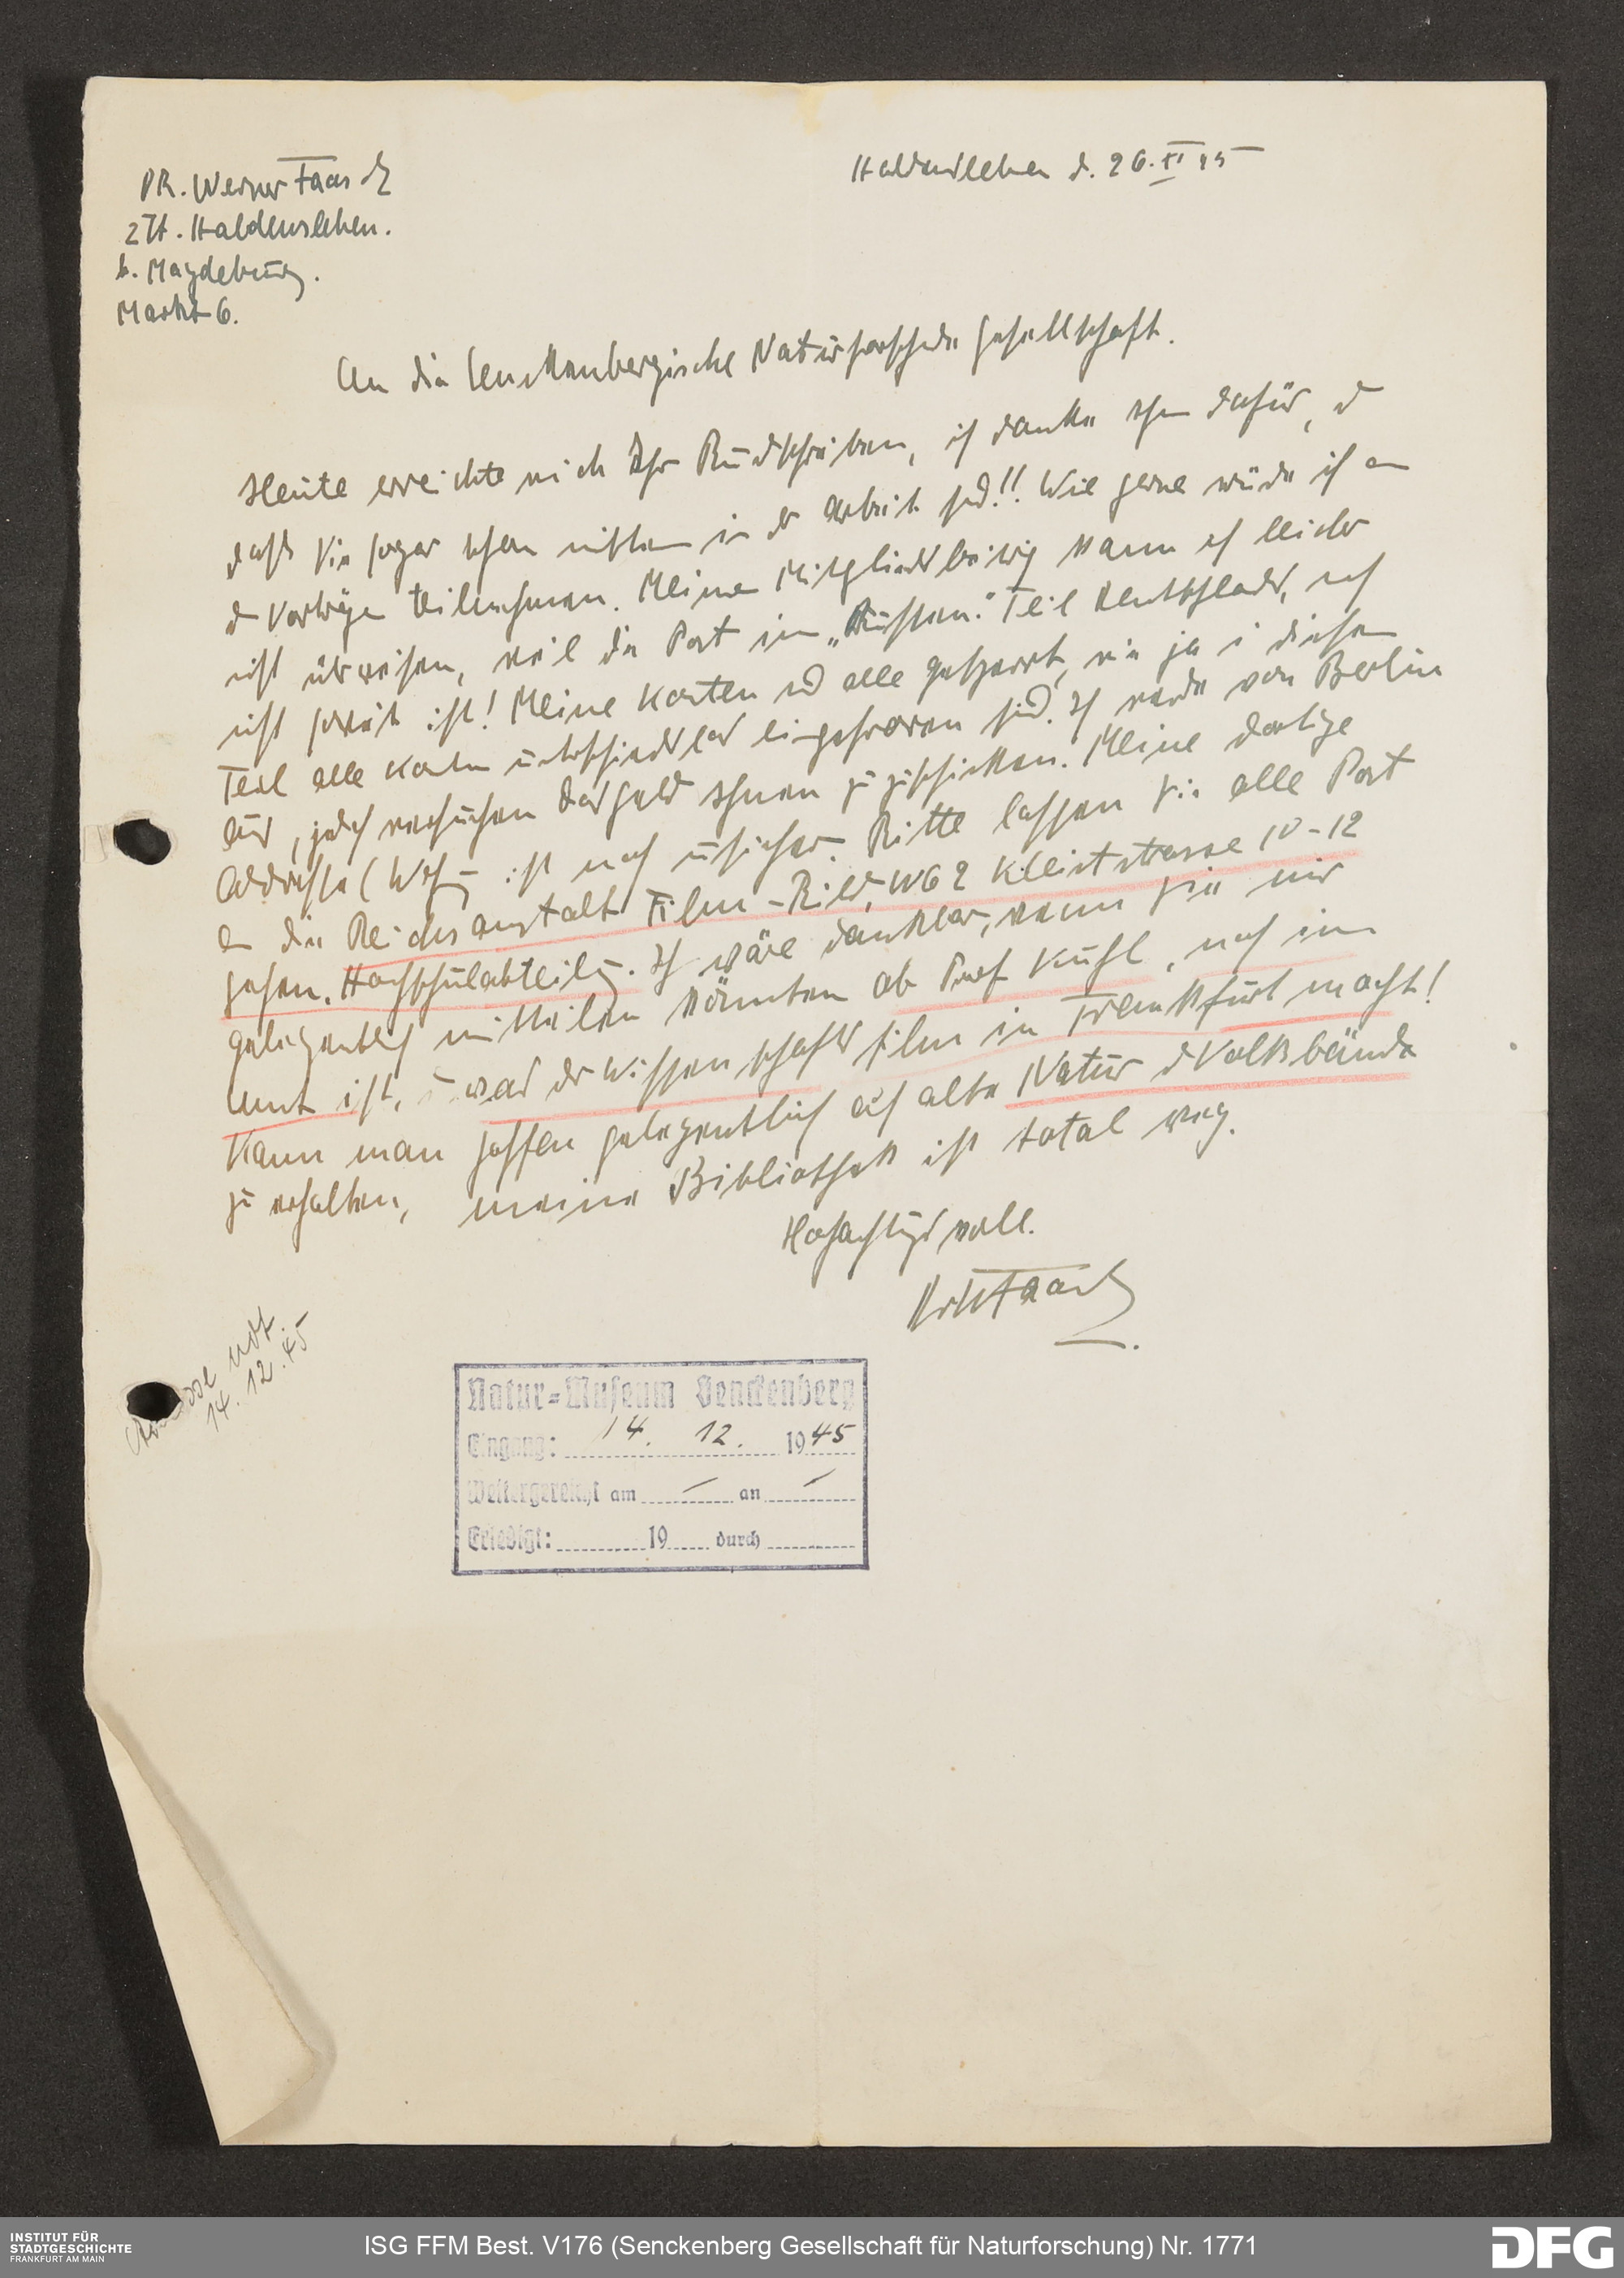 DR. Werner Faasch
zZt. Haldensleben.
b. Magdeburg.
Markt 6.
Haldensleben d. 26. XI 45
An die Senckenbergische Naturforschende Gesellschaft.
Heute erreichte mich Ihr Rundschreiben, ich danke Ihnen dafür, u
daß Sie sogar schon mitten in der Arbeit sind!! Wie gerne würde ich an
den Vorträgen teilnehmen. Meinen Mitgliedsbeitrag kann ich leider
nicht überweisen, weil die Post im „Russen." Teil Deutschlands, noch
nicht soweit ist! Meine Konten sind alle gesperrt, wie ja in diesem
Teil alle Konten unterschiedslos eingefroren sind. Ich werde von Berlin
aus, jedoch versuchen das Geld Ihnen zuzuschicken. Meine dortige
Addresse (Wohnung ist noch unsicher. Bitte lassen Sie alle Post
an die Reichsanstalt Film-Bild, W62 Kleiststrasse 10-12
gehen, Hochschulabteilung. Ich wäre dankbar, wenn Sie mir
gelegentlich mitteilen könnten ob Prof Kuhl, noch im
Amt ist, u was der Wissenschaftl film in Frankfurt macht!
Kann man hoffen gelegentlich auf alte Natur u Volkbände
zu erhalten, meine Bibliothek ist total weg.
Hochachtungsvoll.
Dr W Faasch
14.12.45
Natur-Museum Senckenberg
Eingang: 14. 12. 1945
Weitergereicht am – an –
Erledigt: 19 durch
INSTITUT FÜR
STADTGESCHICHTE
FRANKFURT AM MAIN
ISG FFM Best. V176 (Senckenberg Gesellschaft für Naturforschung) Nr. 1771
DFG